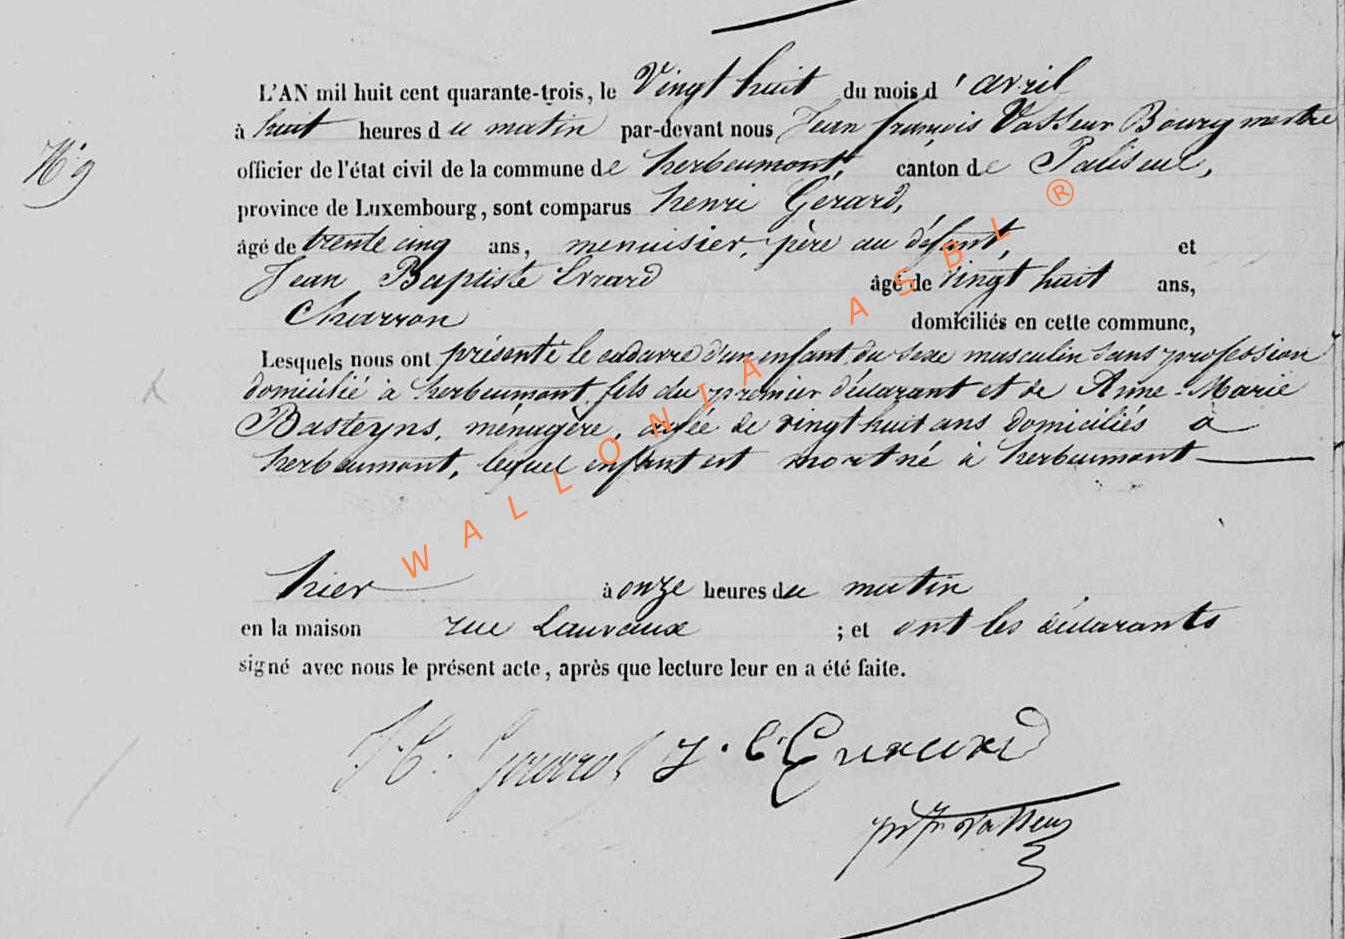 L'AN mil huit cent quarante-trois, le Vingt huit du mois d'avril
à huit heures du matin par-devant nous Jean françois Vasseur Bourgmestre
N° 9
officier de l'état civil de la commune de herbeumont, canton de Paliseul,
province de Luxembourg, sont comparus henri Gérard,
âgé de trente cinq ans, menuisier, père au défunt, et
Jean Baptiste Evrard âgé de vingt huit ans,
Charron domiciliés en cette commune,
Lesquels nous ont présenté le cadavre d'un enfant du sexe masculin sans profession
domicilié à herbeumont, fils du premier déclarant et de Anne-Marie
Basteyns, ménagère, agée de vingt huit ans domiciliés à
herbeumont, lequel enfant est mort né à herbeumont
hier à onze heures du matin
en la maison rue Lauvaux ; et ont les déclarants
signé avec nous le présent acte, après que lecture leur en a été faite.
H. Gerard J. B. Evrard
Vasseur
WALLONIA ASBL ®